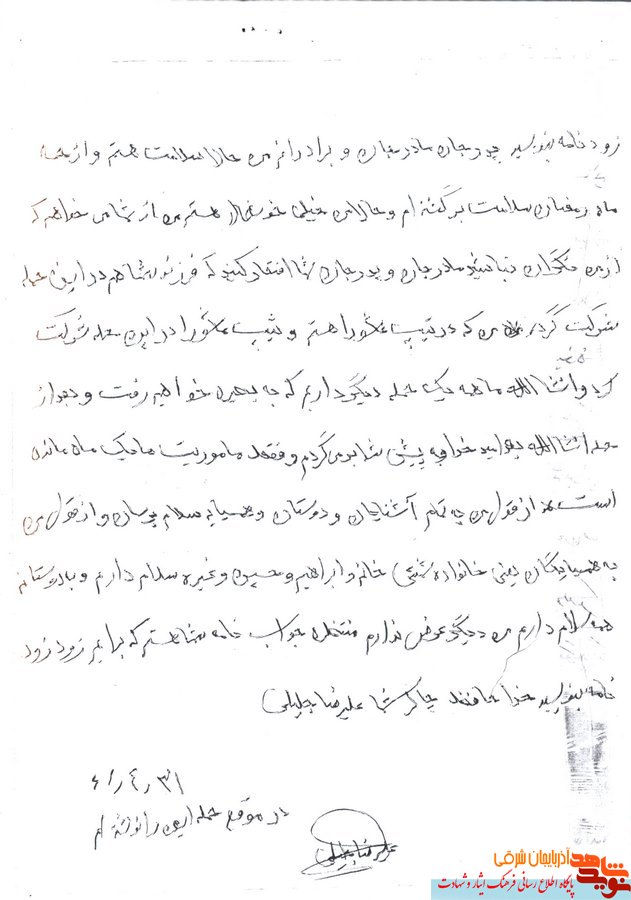 زود نامه بنویسید پدرجان مادرجان و برادرانم من حالا سلامت هستم و از حمله
ماه رمضان سلامت برگشته‌ام و حالا من خیلی خوشحال هستم من از شما می خواهم که
از من نگران نباشید مادرجان و پدرجان شما افتخار کنید که فرزند شما هم در این حمله
شرکت کرد من که در تیپ عاشورا هستم و تیپ عاشورا در این حمله شرکت
کرد و انشاالله ما همه یک حمله دیگر داریم که به بصره خواهیم رفت و بعد از
حمله انشاالله پیش شما برمی گردم و فقط ماموریت ما یک ماه مانده
است از قول من به تمام آشنایان و دوستان و همسایه سلام برسان و از قول من
به همسایگان یعنی خانواده خانم و ابراهیم و حسین و غیره سلام دارم و به دوستانم
همه سلام دارم من دیگر عرض ندارم منتظر جواب نامه شما هستم که برایم زود زود
نامه بنویسید خداحافظ چاکر شما علیرضا جلیلی
۶۱٫۴٫۳۱
در موقع حمله این را نوشته ام
علیرضا جلیلی
نوید شاهد آذربایجان شرقی
پایگاه اطلاع رسانی فرهنگ ایثار و شهادت